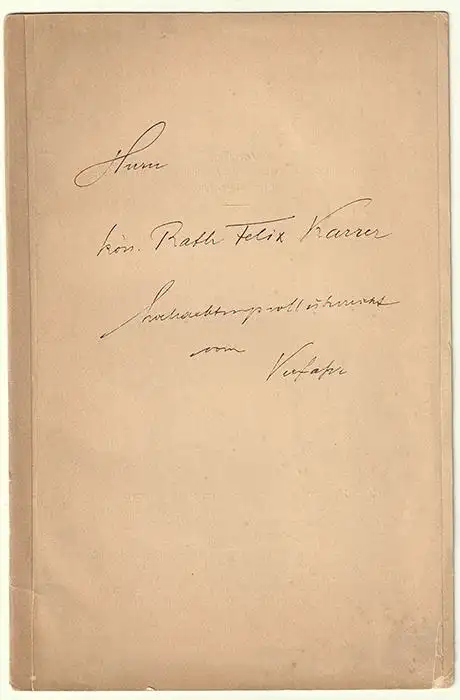 Herrn
kön. Rath Felix Karrer
hochachtungsvoll überreicht
vom
Verfasser